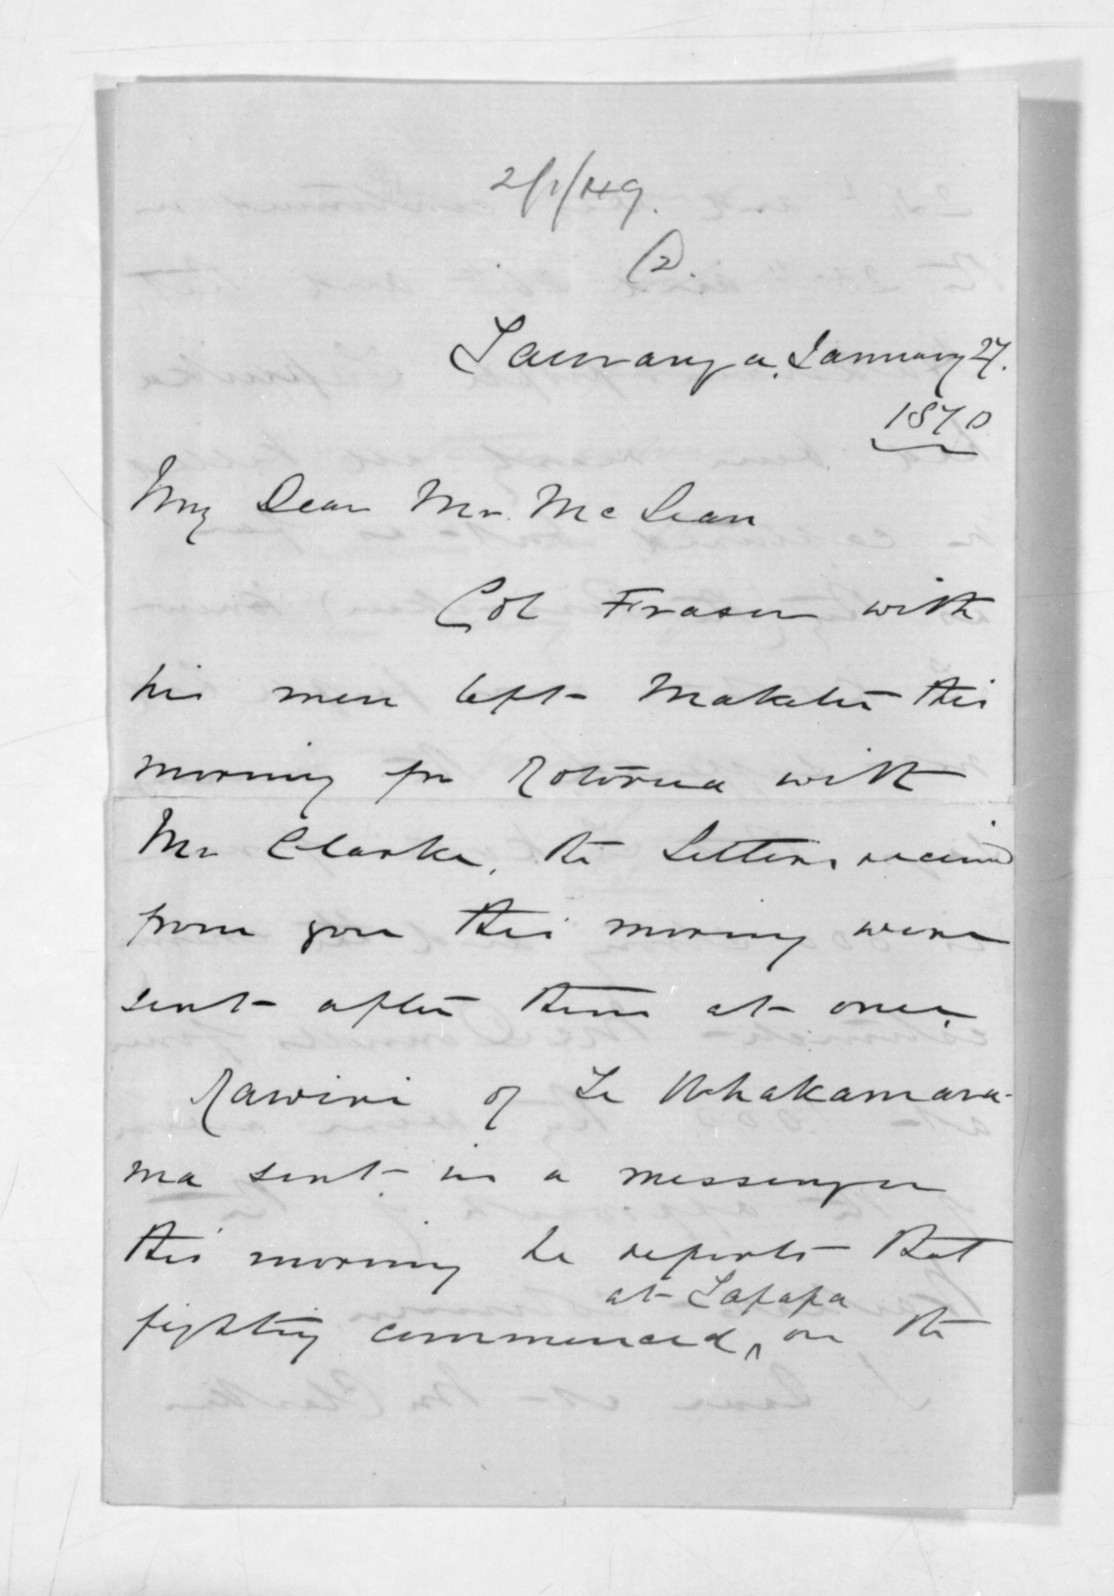 2/1/149.
(2.
Tauranga, January 27.
1870
My Dear Mr. McLean
Col Fraser with
his men left Maketu this
morning for Rotorua with
Mr Clarke, the letters received
from you this morning were
sent after them at once.
Rawiri of Te Whakamara-
ma sent in a messenger
this morning he reports that
at Tapapa
fighting commenced, on the